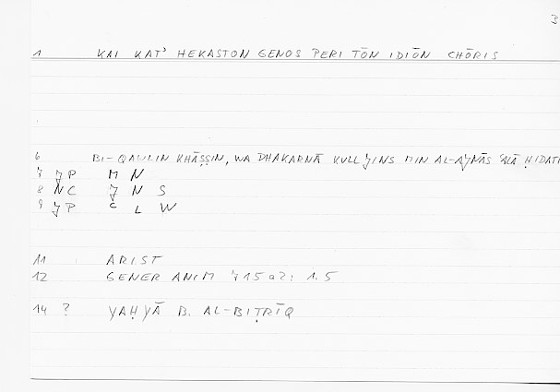 3
1 KAI KAT' HEKASTON GENOS PERI TŌN IDIŌN CHŌRIS
6 BI-QAWLIN KHĀṢṢIN, WA DHAKARNĀ KULL JINS MIN AL-AJNĀS ḤIDATI
JP M N
8 NC J N S
9 JP C L W
11 ARIST
12 GENER ANIM 715 a2: 1.5
14 ? YAḤYĀ B. AL-BIṬRĪQ